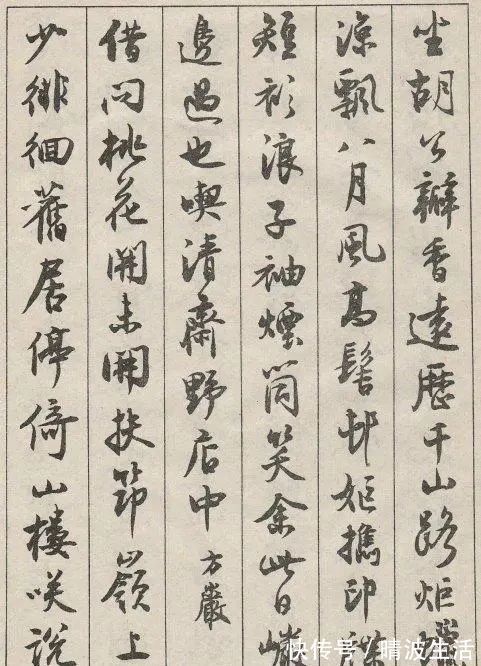 坐胡公瓣香遠歷千山路炬
涼飄八月風高髻邨姬攜印
短衫浪子袖煙筒笑余此日
邊過也喫清齋野店中方巖
借问桃花開未開扶筇嶺上
少徘徊舊居停倚山樓咲說
快传号/晴波生活